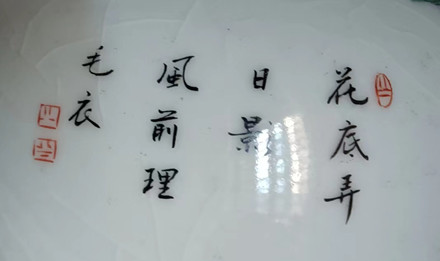 花底弄
日影
風前理
毛衣